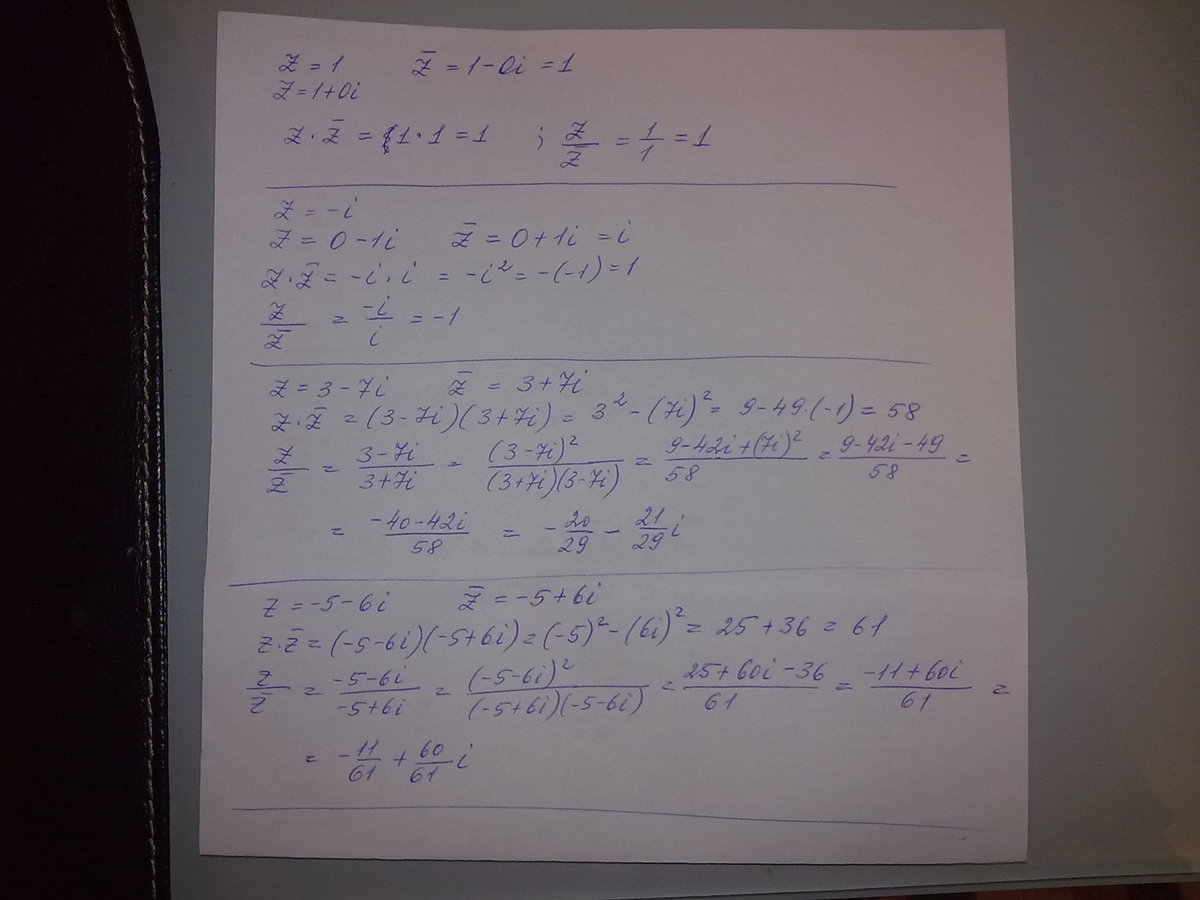 z = 1 z̄ = 1 - 0i = 1
z = 1 + 0i
z · z̄ = 1 · 1 = 1 ; z/z̄ = 1/1 = 1
z = -i
z = 0 - 1i z̄ = 0 + 1i = i
z · z̄ = -i · i = -i² = -(-1) = 1
z/z̄ = -i/i = -1
z = 3 - 7i z̄ = 3 + 7i
z · z̄ = (3 - 7i)(3 + 7i) = 3² - (7i)² = 9 - 49 · (-1) = 58
z/z̄ = (3 - 7i)/(3 + 7i) = (3 - 7i)²/((3 + 7i)(3 - 7i)) = (9 - 42i + (7i)²)/58 = (9 - 42i - 49)/58 =
= (-40 - 42i)/58 = -20/29 - 21/29 i
z = -5 - 6i z̄ = -5 + 6i
z · z̄ = (-5 - 6i)(-5 + 6i) = (-5)² - (6i)² = 25 + 36 = 61
z/z̄ = (-5 - 6i)/(-5 + 6i) = (-5 - 6i)²/((-5 + 6i)(-5 - 6i)) = (25 + 60i - 36)/61 = (-11 + 60i)/61 =
= -11/61 + 60/61 i